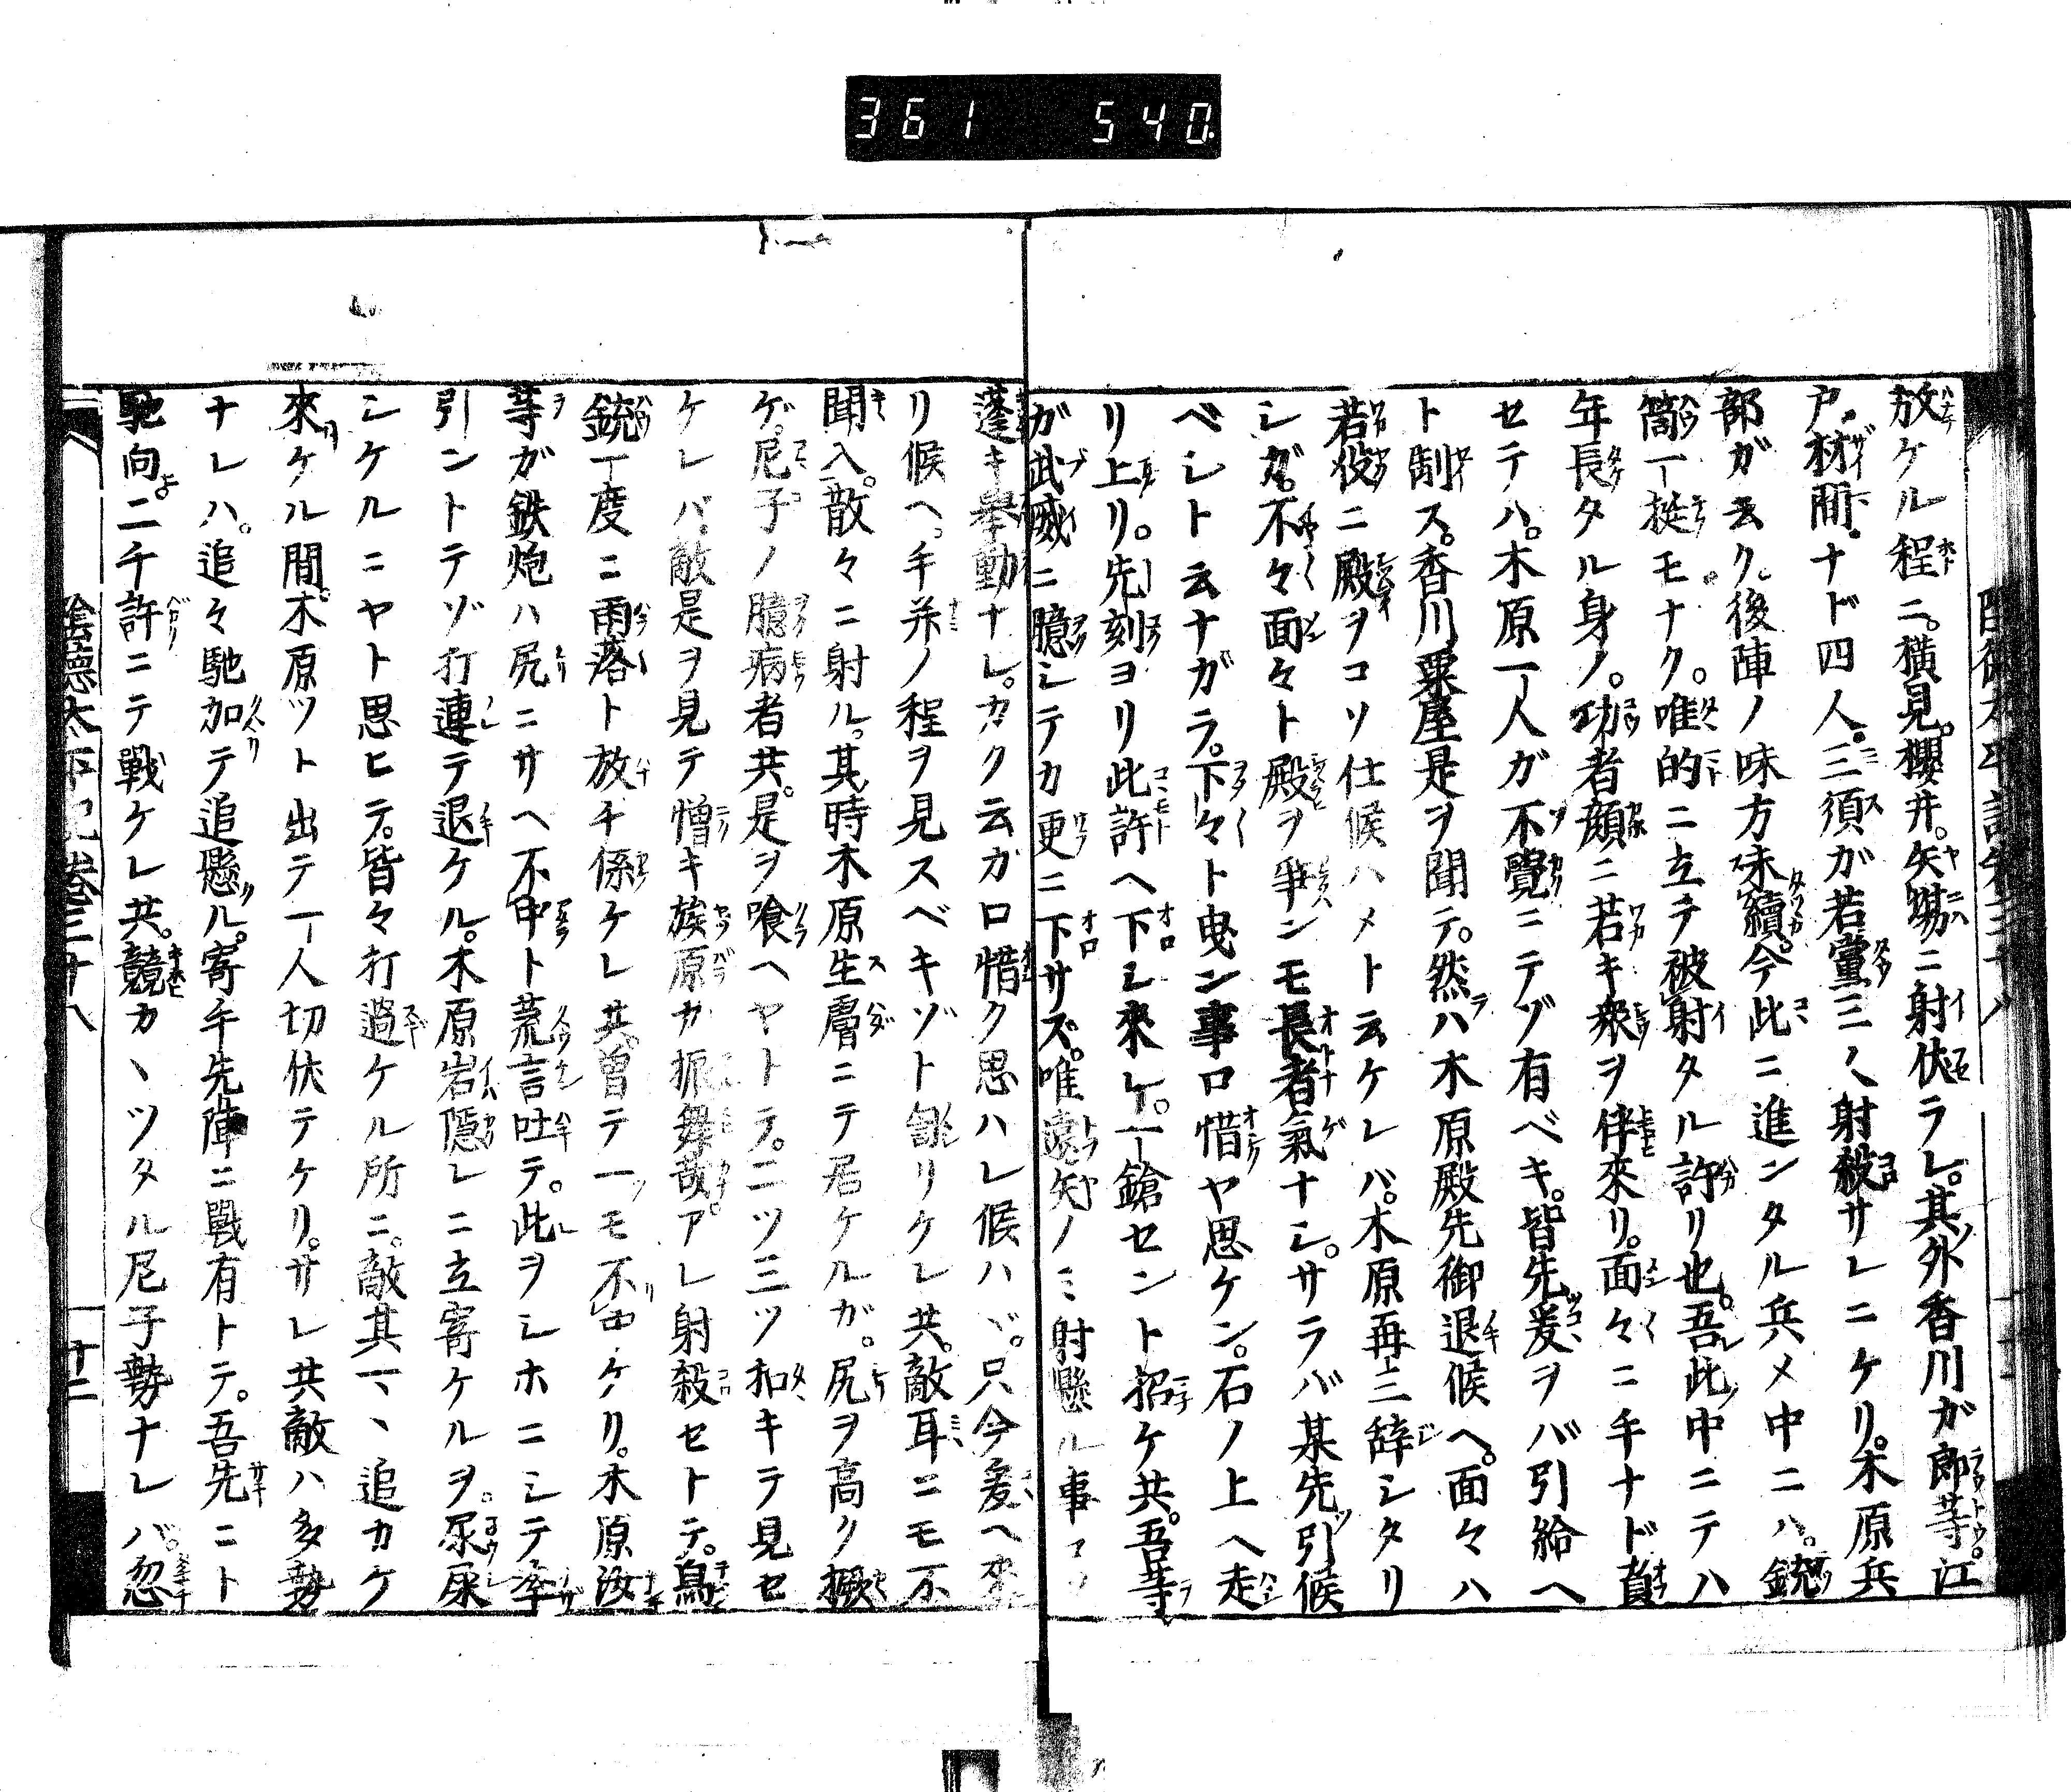 361 540
放ケル程ニ。横見。櫻井。矢場ニ射伏ラレ。其外香川ガ郎等。江
戸。材間。ナド四人。三須ガ若黨三人射殺サレニケリ。木原兵
部ガ云ク。後陣ノ味方未續。今此ニ進ンタル兵メ中ニハ。銃
筒一挺モナク。唯的ニ立テ被射タル許リ也。吾此中ニテハ
年長タル身ノ。功者顔ニ若キ衆ヲ伴來リ。面々ニ手ナド負
セテハ。木原一人ガ不覺ニテゾ有ベキ。皆先爰ヲバ引給ヘ
ト制ス。香川粟屋是ヲ聞テ。然ハ木原殿先御退候ヘ。面々ハ
若役ニ殿ヲコソ仕候ハメト云ケレバ。木原再三辞シタリ
シガ。不々面々ト殿ヲ爭ンモ長者氣ナシ。サラバ某先引候
ベシト云ナガラ。下々ト曳ン事口惜ヤ思ケン。石ノ上ヘ走
リ上リ。先刻ヨリ此許ヘ下シ來レ。一鎗セント招ケ共。吾等
ガ武威ニ臆シテカ更ニ下サズ。唯遠矢ノミ射懸ル事
蓬キ擧動ナレ。カク云ガ口惜ク思ハレ候ハヾ。只今爰ヘ來
リ候ヘ。手並ノ程ヲ見スベキゾト訇リケレ共。敵耳ニモ不
聞入。散々ニ射ル。其時木原生膚ニテ居ケルガ。尻ヲ高ク撅
ゲ。尼子ノ臆病者共。是ヲ喰ヘヤトテ。二ツ三ツ扣キテ見セ
ケレバ。敵是ヲ見テ憎キ族原カ振舞哉。アレ射殺セトテ。鳥
銃一度ニ雨落ト放チ係ケレ共。曽テ一モ不中ケリ。木原汝
等ガ鉄炮ハ尻ニサヘ不中ト荒言吐テ。此ヲシホニシテ率
引ントテゾ打連テ退ケル。木原岩隱レニ立寄ケルヲ。尿尿
シケルニヤト思ヒテ。皆々打過ケル所ニ。敵其一、追カケ
來ケル間。木原ツト出テ一人切伏テケリ。サレ共敵ハ多勢
ナレハ。追々馳加テ追懸ル。寄手先陣ニ戰有トテ。吾先ニト
馳向。二千許ニテ戰ケレ共。競カヽツタル尼子勢ナレバ。忽
陰德太平記卷三十八 十二